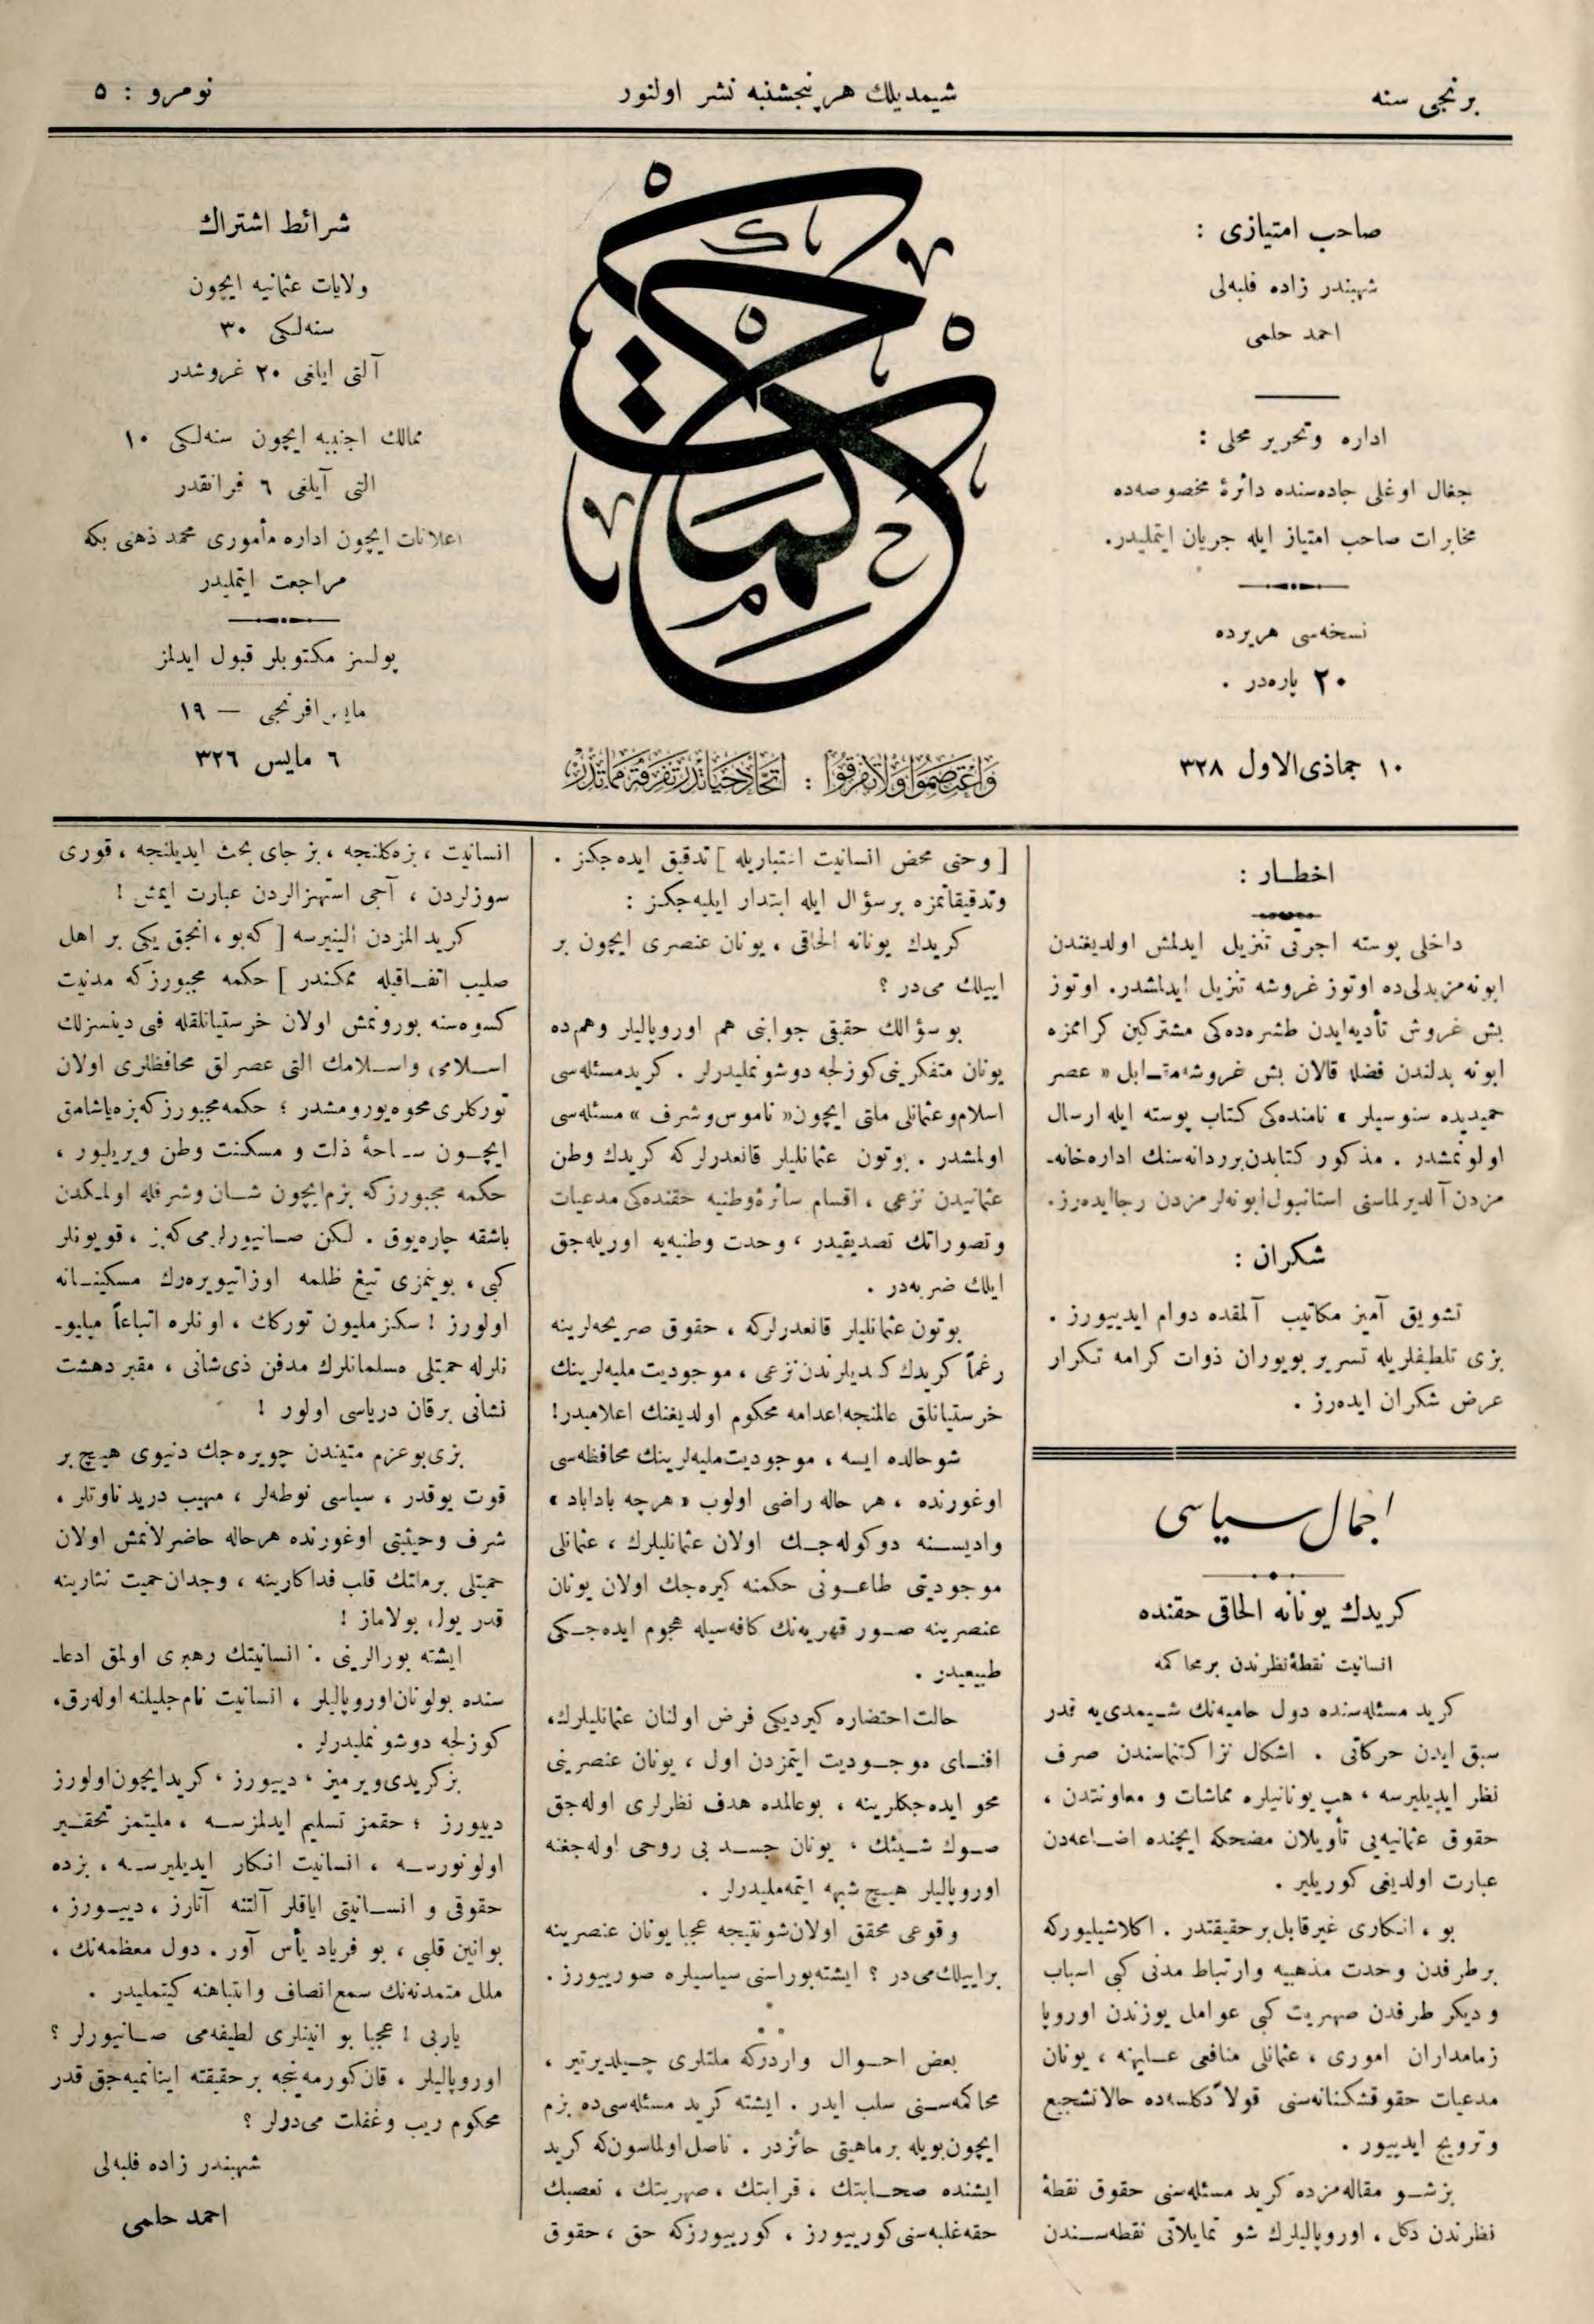 برنجی سنه
شیمدیلك هر پنجشنبه نشر اولنور
نومرو : ٥
صاحب امتیازی :
شهبندر زاده فلبه‌لی
احمد حلمی
اداره وتحریر محلی :
جغال اوغلی جاده‌سنده دائرۀ مخصوصه‌ده
مخابرات صاحب امتیاز ایله جریان ایتملیدر.
نسخه‌سی هر یرده
٢٠ پاره‌در .
١٠ جماذی‌الاول ٣٢٨
حكمت
وَاعْتَصِمُوا وَلَا تَفَرَّقُوا : اتحاد حیاتدر تفرقه مماتدر
شرائط اشتراك
ولایات عثمانیه ایچون
سنه‌لكی ٣٠
آلتی ایلغی ٢٠ غروشدر
ممالك اجنبیه ایچون سنه‌لكی ١٠
التی آیلغی ٦ فرانقدر
اعلانات ایچون اداره مأموری محمد ذهنی بكه
مراجعت ایتملیدر
پولسز مكتوبلر قبول ایدلمز
مایس افرنجی — ١٩
٦ مایس ٣٢٦
اخطـار :
داخلی پوسته اجرتی تنزیل ایدلمش اولدیغندن
ابونه‌مز بدلی‌ده اوتوز غروشه تنزیل ایدلمشدر. اوتوز
بش غروش تأدیه ایدن طشره‌ده‌كی مشتركین كرامزه
ابونه بدلندن فضله قالان بش غروشه مقـابل « عصر
حمیدیده سنوسیلر » نامنده‌كی كتاب پوسته ایله ارسال
اولونمشدر . مذكور كتابدن برردانه‌سنك اداره‌خانه‌ـ
مزدن آلدیرلماسنی استانبول ابونه‌لرمزدن رجا ایده‌رز.
شكران :
تشویق آمیز مكاتیب آلمقده دوام ایدییورز .
بزی تلطیفلریله تسریر بویوران ذوات كرامه تكرار
عرض شكران ایده‌رز .
اجمال سیاسی
كریدك یونانه الحاقی حقنده
انسانیت نقطۀ نظرندن بر محاكمه
كرید مسئله‌سنده دول حامیه‌نك شـیمدی‌یه قدر
سبق ایدن حركاتی . اشكال نزاكتنماسندن صرف
نظر ایدیلیرسه ، هپ یونانیلره مماشات و معاونتدن ،
حقوق عثمانیه‌یی تأویلان مضحكه ایچنده اضـاعه‌دن
عبارت اولدیغی كوریلیر .
بو ، انـكاری غیرقابل بر حقیقتدر . اكلاشیلیوركه
بر طرفدن وحدت مذهبیه وارتباط مدنی كبی اسباب
و دیكر طرفدن صهریت كبی عوامل یوزندن اوروپا
زمامداران اموری ، عثمانلی منافعی علـیهنه ، یونان
مدعیات حقوقشكنانه‌سنی قولاً دكلسه‌ده حالاً تشجیع
وترویج ایدییور .
بزشـو مقاله‌مزده كرید مسئله‌سنی حقوق نقطۀ
نظرندن دكل ، اوروپالیلرك شو تمایلاتی نقطه‌سـندن
[ وحتی محض انسانیت اعتباریله ] تدقیق ایده‌جكز .
وتدقیقاتمزه بر سؤال ایله ابتدار ایلیه‌جكز :
كریدك یونانه الحاقی ، یونان عنصری ایچون بر
اییلك می‌در ؟
بو سؤالك حقیقی جوابنی هم اوروپالیلر وهم‌ده
یونان متفكرینی كوزلجه دوشونملیدرلر . كرید مسئله‌سی
اسلام وعثمانلی ملتی ایچون « ناموس وشرف » مسئله‌سی
اولمشدر . بوتون عثمانلیلر قانعدرلركه كریدك وطن
عثمانیدن نزعی ، اقسام سائرۀ وطنیه حقنده‌كی مدعیات
وتصوراتك تصدیقیدر ، وحدت وطنیه‌یه اوریله‌جق
ایلك ضربه‌در .
بوتون عثمانلیلر قانعدرلركه ، حقوق صریحه‌لرینه
رغماً كریدك كـندیلرندن نزعی ، موجودیت ملیه‌لرینك
خرستیانلق عالمنجه اعدامه محكوم اولدیغنك اعلامیدر!
شو حالده ایسه ، موجودیت ملیه‌لرینك محافظه‌سی
اوغورنده ، هر حاله راضی اولوب « هرچه باداباد »
وادیسـنه دوكوله‌جـك اولان عثمانلیلرك ، عثمانلی
موجودیتی طاعـونی حكمنه كیره‌جك اولان یونان
عنصرینه صـور قهریه‌نك كافه‌سیله هجوم ایده‌جـكی
طبیعیدر .
حالت احتضاره كیردیكی فرض اولنان عثمانلیلرك،
افنـای موجـودیت ایتمزدن اول ، یونان عنصرینی
محو ایده‌جكلرینه ، بوعالمده هدف نظرلری اوله‌جق
صـوك شـیئك ، یونان جسـد بی روحی اوله‌جغنه
اوروپالیلر هیـچ شبهه ایتمه‌ملیدرلر .
وقوعی محقق اولان شونتیجه عجبا یونان عنصرینه
بر اییلك می‌در ؟ ایشته بوراسنی سیاسیلره صورییورز .
بعض احـوال واردركه ملتلری چـیلدیرتیر ،
محاكمه‌سـنی سلب ایدر . ایشته كرید مسئله‌سی‌ده بزم
ایچون بویله بر ماهیتی حائزدر . ناصل اولماسون‌كه كرید
ایشنده صحـابتك ، قرابتك ، صهریتك ، تعصبك
حقه غلبه‌سنی كورییورز . كورییورزكه حق ، حقوق
انسانیت ، بزه كلنجه ، بز جای بحث ایدیلنجه ، قوری
سوزلردن ، آجی استهزالردن عبارت ایمش !
كرید المزدن الینیرسه [ كه‌بو ، انجق یكی بر اهل
صلیب اتفـاقیله ممكندر ] حكمه مجبورزكه مدنیت
كسوه‌سنه بورونمش اولان خرستیانلقله فی دینسزلك
اسـلامی واسـلامك التی عصرلق محافظلری اولان
توركلری محوه یورومشدر ؛ حكمه مجبورزكه بزه یاشامق
ایچـون سـاحۀ ذلت و مسكنت وطن ویریلیور ،
حكمه مجبورزكه بزم ایچون شـان وشرفله اولمـكدن
باشقه چاره یوق . لـكن صـانیورلرمی كه بز ، قویونلر
كبی ، بوینمزی تیغ ظلمه اوزاتیویره‌رك مسكینـانه
اولورز ! سكز ملیون توركك ، اونلره اتباعاً میلیو‌ـ
نلرله حمیتلی مسلمانلرك مدفن ذی‌شانی ، مقبر دهشت
نشانی بر قان دریاسی اولور !
بزی بو عزم متیندن چویره‌جك دنیوی هیـچ بر
قوت یوقدر ، سیاسی نوطه‌لر ، مهیب دریدناوتلر ،
شرف وحیثیتی اوغورنده هر حاله حاضرلانمش اولان
حمیتلی بر ملتك قلب فداكارینه ، وجدان حمیت نثارینه
قدر یول بولاماز !
ایشته بورالرینی : انسانیتك رهبری اولمق ادعا‌ـ
سنده بولونان اوروپالیلر ، انسانیت نام جلیلنه اوله‌رق،
كوزلجه دوشونملیدرلر .
بز كریدی ویرمیز ، دییورز ، كرید ایچون اولورز
دییورز ؛ حقمز تسلیم ایدلمزسـه ، ملیتمز تحقـیر
اولونورسـه ، انسانیت انكار ایدیلیرسـه ، بزده
حقوقی و انسـانیتی ایاقلر آلتنه آتارز ، دییـورز ،
بو انین قلبی ، بو فریاد یأس آور . دول معظمه‌نك ،
ملل متمدنه‌نك سمع انصاف وانتباهنه كیتملیدر .
یاربی ! عجبا بو انینلری لطیفه‌می صـانیورلر ؟
اوروپالیلر ، قان كورمه‌ینجه بر حقیقته اینانمیه‌جق قدر
محكوم ریب وغفلت می‌درلر ؟
شهبندر زاده فلبه‌لی
احمد حلمی